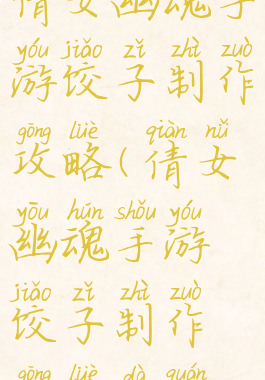 倩女幽魂手
yóu jiǎo zǐ zhì zuò
游饺子制作
gōng lüè qiàn nǚ
攻略(倩女
yōu hún shǒu yóu
幽魂手游
jiǎo zǐ zhì zuò
饺子制作
gōng lüè dà quán